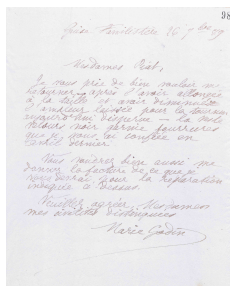 98
16 7bre 97
Mesdames Océt,
Je vous prie de bien vouloir me
retourner, après l'avoir allongée
à la taille et avoir diminué
l'ampleur
aujourd'hui disparue — la robe
velours noir garnie fourrures
que je vous ai confiée en
avril dernier.
Vous voudrez bien aussi me
donner la facture de ce que je
vous devrai pour la réparation
indiquée ci-dessus.
Veuillez agréer, Mesdames,
mes civilités distinguées
Maria Godin